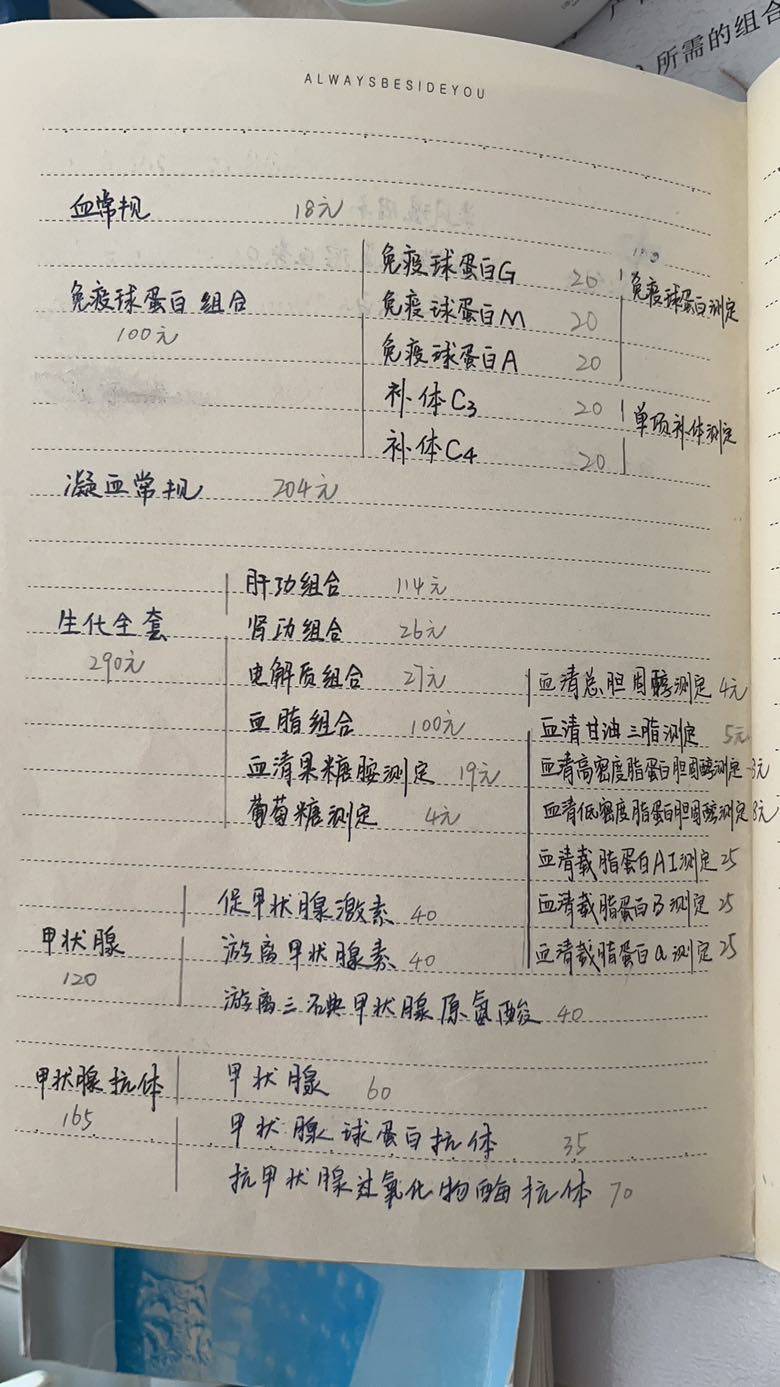 所需的组合
ALWAYSBESIDEYOU
血常规 18元
免疫球蛋白G 20 免疫球蛋白测定
免疫球蛋白组合 免疫球蛋白M 20
100元
免疫球蛋白A 20
补体C3 20 单项补体测定
补体C4 20
凝血常规 204元
肝功组合 114元
生化全套 肾功组合 26元
290元
电解质组合 27元 血清总胆固醇测定 4元
血脂组合 100元 血清甘油三脂测定 5元
血清果糖胺测定 19元 血清高密度脂蛋白胆固醇测定 8元
葡萄糖测定 4元 血清低密度脂蛋白胆固醇测定 8元
血清载脂蛋白AI测定 25
促甲状腺激素 40 血清载脂蛋白B测定 25
甲状腺 游离甲状腺素 40 血清载脂蛋白a测定 25
120
游离三碘甲状腺原氨酸 40
甲状腺抗体 甲状腺 60
165
甲状腺球蛋白抗体 35
抗甲状腺过氧化物酶抗体 70